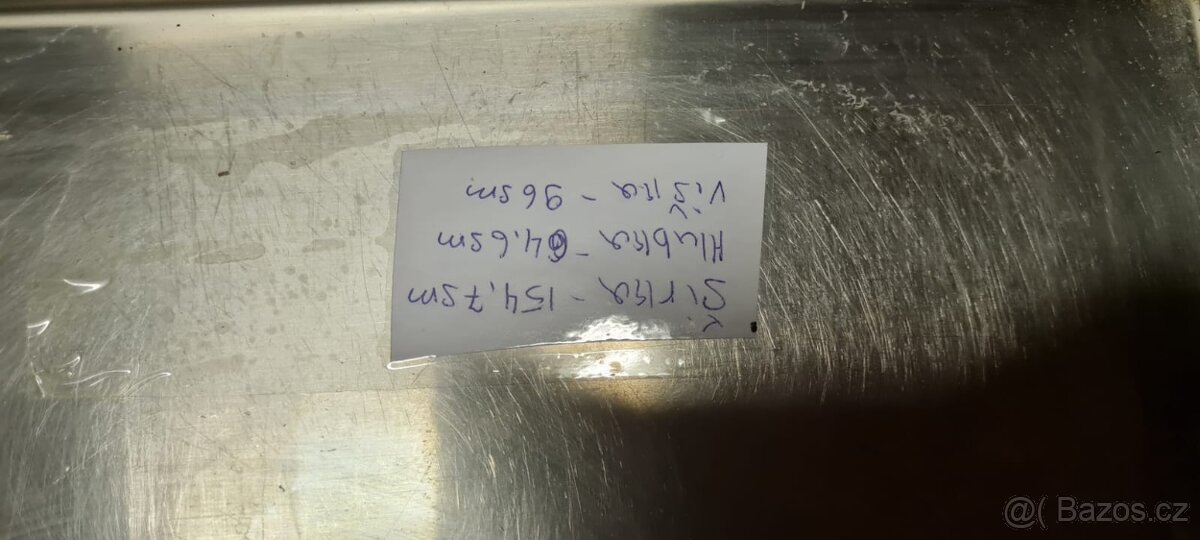 Širka - 154,7sm
Hlubka - 64,6sm
Viška - 96sm
@( Bazos.cz